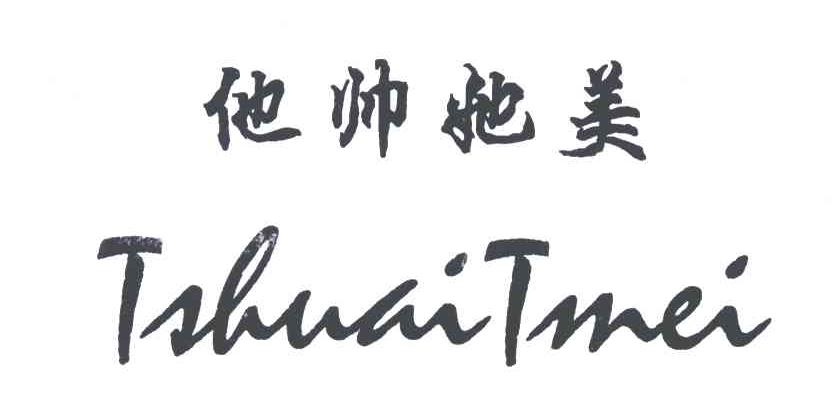 他帅她美
TshuaiTmei